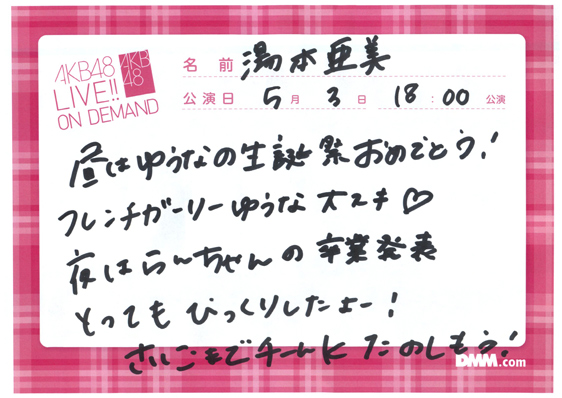 AKB48
LIVE!!
ON DEMAND
AKB
48
名前 湯本亜美
公演日 5月3日 18:00公演
昼はゆうなの生誕祭おめでとう!
フレンチガーリーゆうな大スキ♡
夜はらんちゃんの卒業発表
とってもびっくりしたよー!
さいごまでチームKたのしもう!
DMM.com